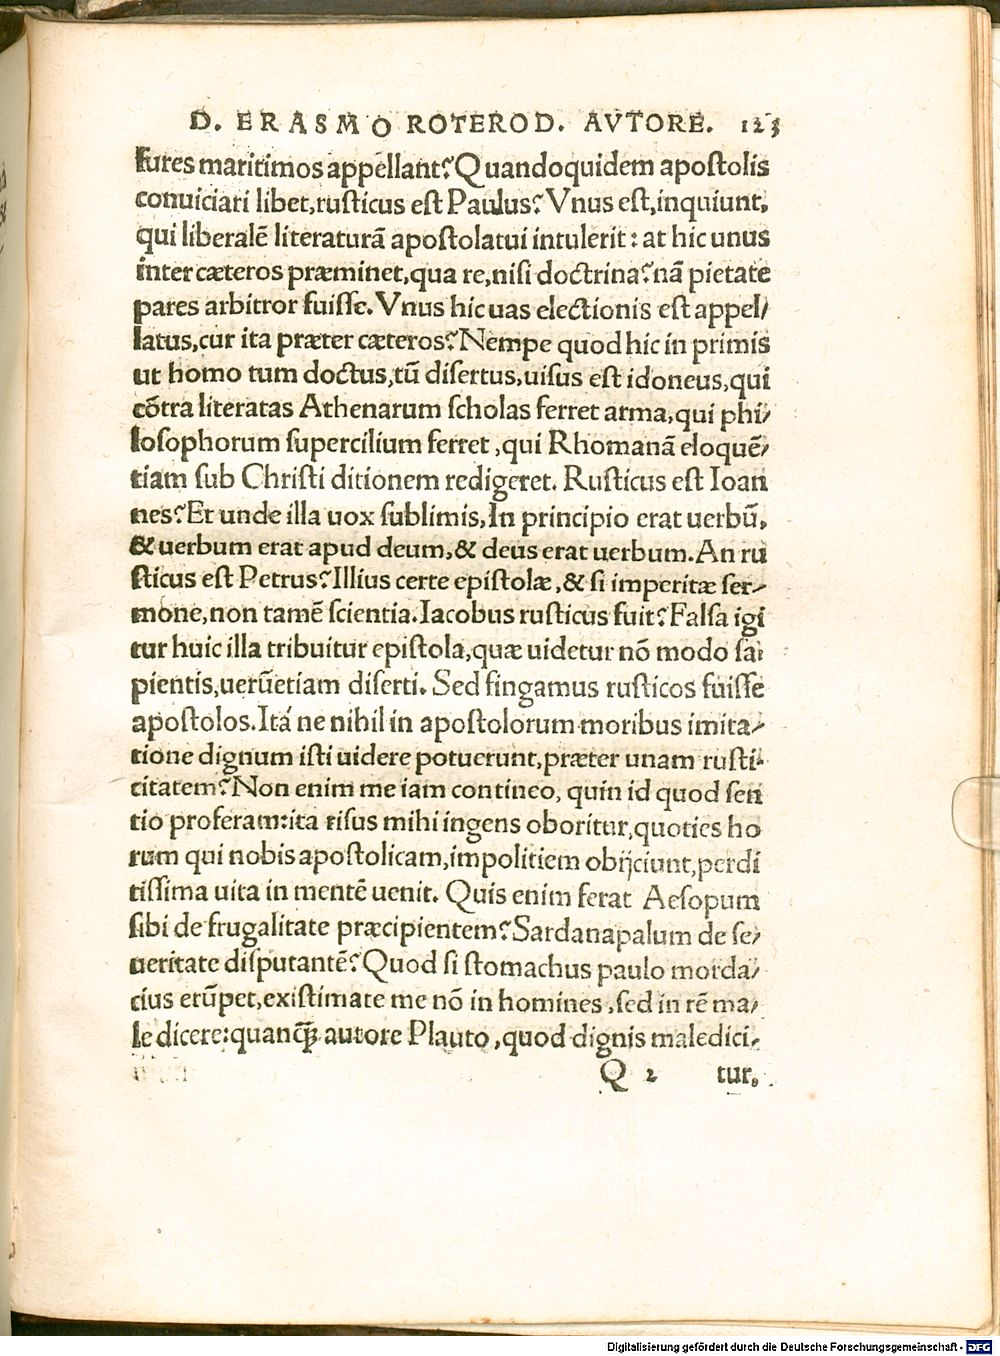 D. ERASMO ROTEROD. AVTORE. 123
fures maritimos appellant? Quandoquidem apostolis
conuiciari libet,rusticus est Paulus? Vnus est,inquiunt,
qui liberalē literaturā apostolatui intulerit: at hic unus
inter cæteros præminet,qua re,nisi doctrina? nā pietate
pares arbitror fuisse. Vnus hic uas electionis est appel/
latus,cur ita præter cæteros? Nempe quod hic in primis
ut homo tum doctus,tū disertus,uisus est idoneus,qui
cōtra literatas Athenarum scholas ferret arma,qui phi/
losophorum supercilium ferret ,qui Rhomanā eloquē/
tiam sub Christi ditionem redigeret. Rusticus est Ioan
nes? Et unde illa uox sublimis,In principio erat uerbū,
& uerbum erat apud deum,& deus erat uerbum. An ru
sticus est Petrus? Illius certe epistolæ,& si imperitæ ser/
mone,non tamē scientia. Iacobus rusticus fuit? Falsa igi
tur huic illa tribuitur epistola,quæ uidetur nō modo sa
pientis,uerūetiam diserti. Sed fingamus rusticos fuisse
apostolos. Ita ne nihil in apostolorum moribus imita/
tione dignum isti uidere potuerunt,præter unam rusti/
citatem? Non enim me iam contineo, quin id quod sen
tio proferam:ita risus mihi ingens oboritur,quoties ho
rum qui nobis apostolicam,impolitiem obijciunt,perdi
tissima uita in mentē uenit. Quis enim ferat Aesopum
sibi de frugalitate præcipientem? Sardanapalum de se/
ueritate disputantē? Quod si stomachus paulo morda/
cius erūpet,existimate me nō in homines ,sed in rē ma/
le dicere:quancꝗ autore Plauto ,quod dignis maledici/
Q 2 tur,
Digitalisierung gefördert durch die Deutsche Forschungsgemeinschaft - DFG